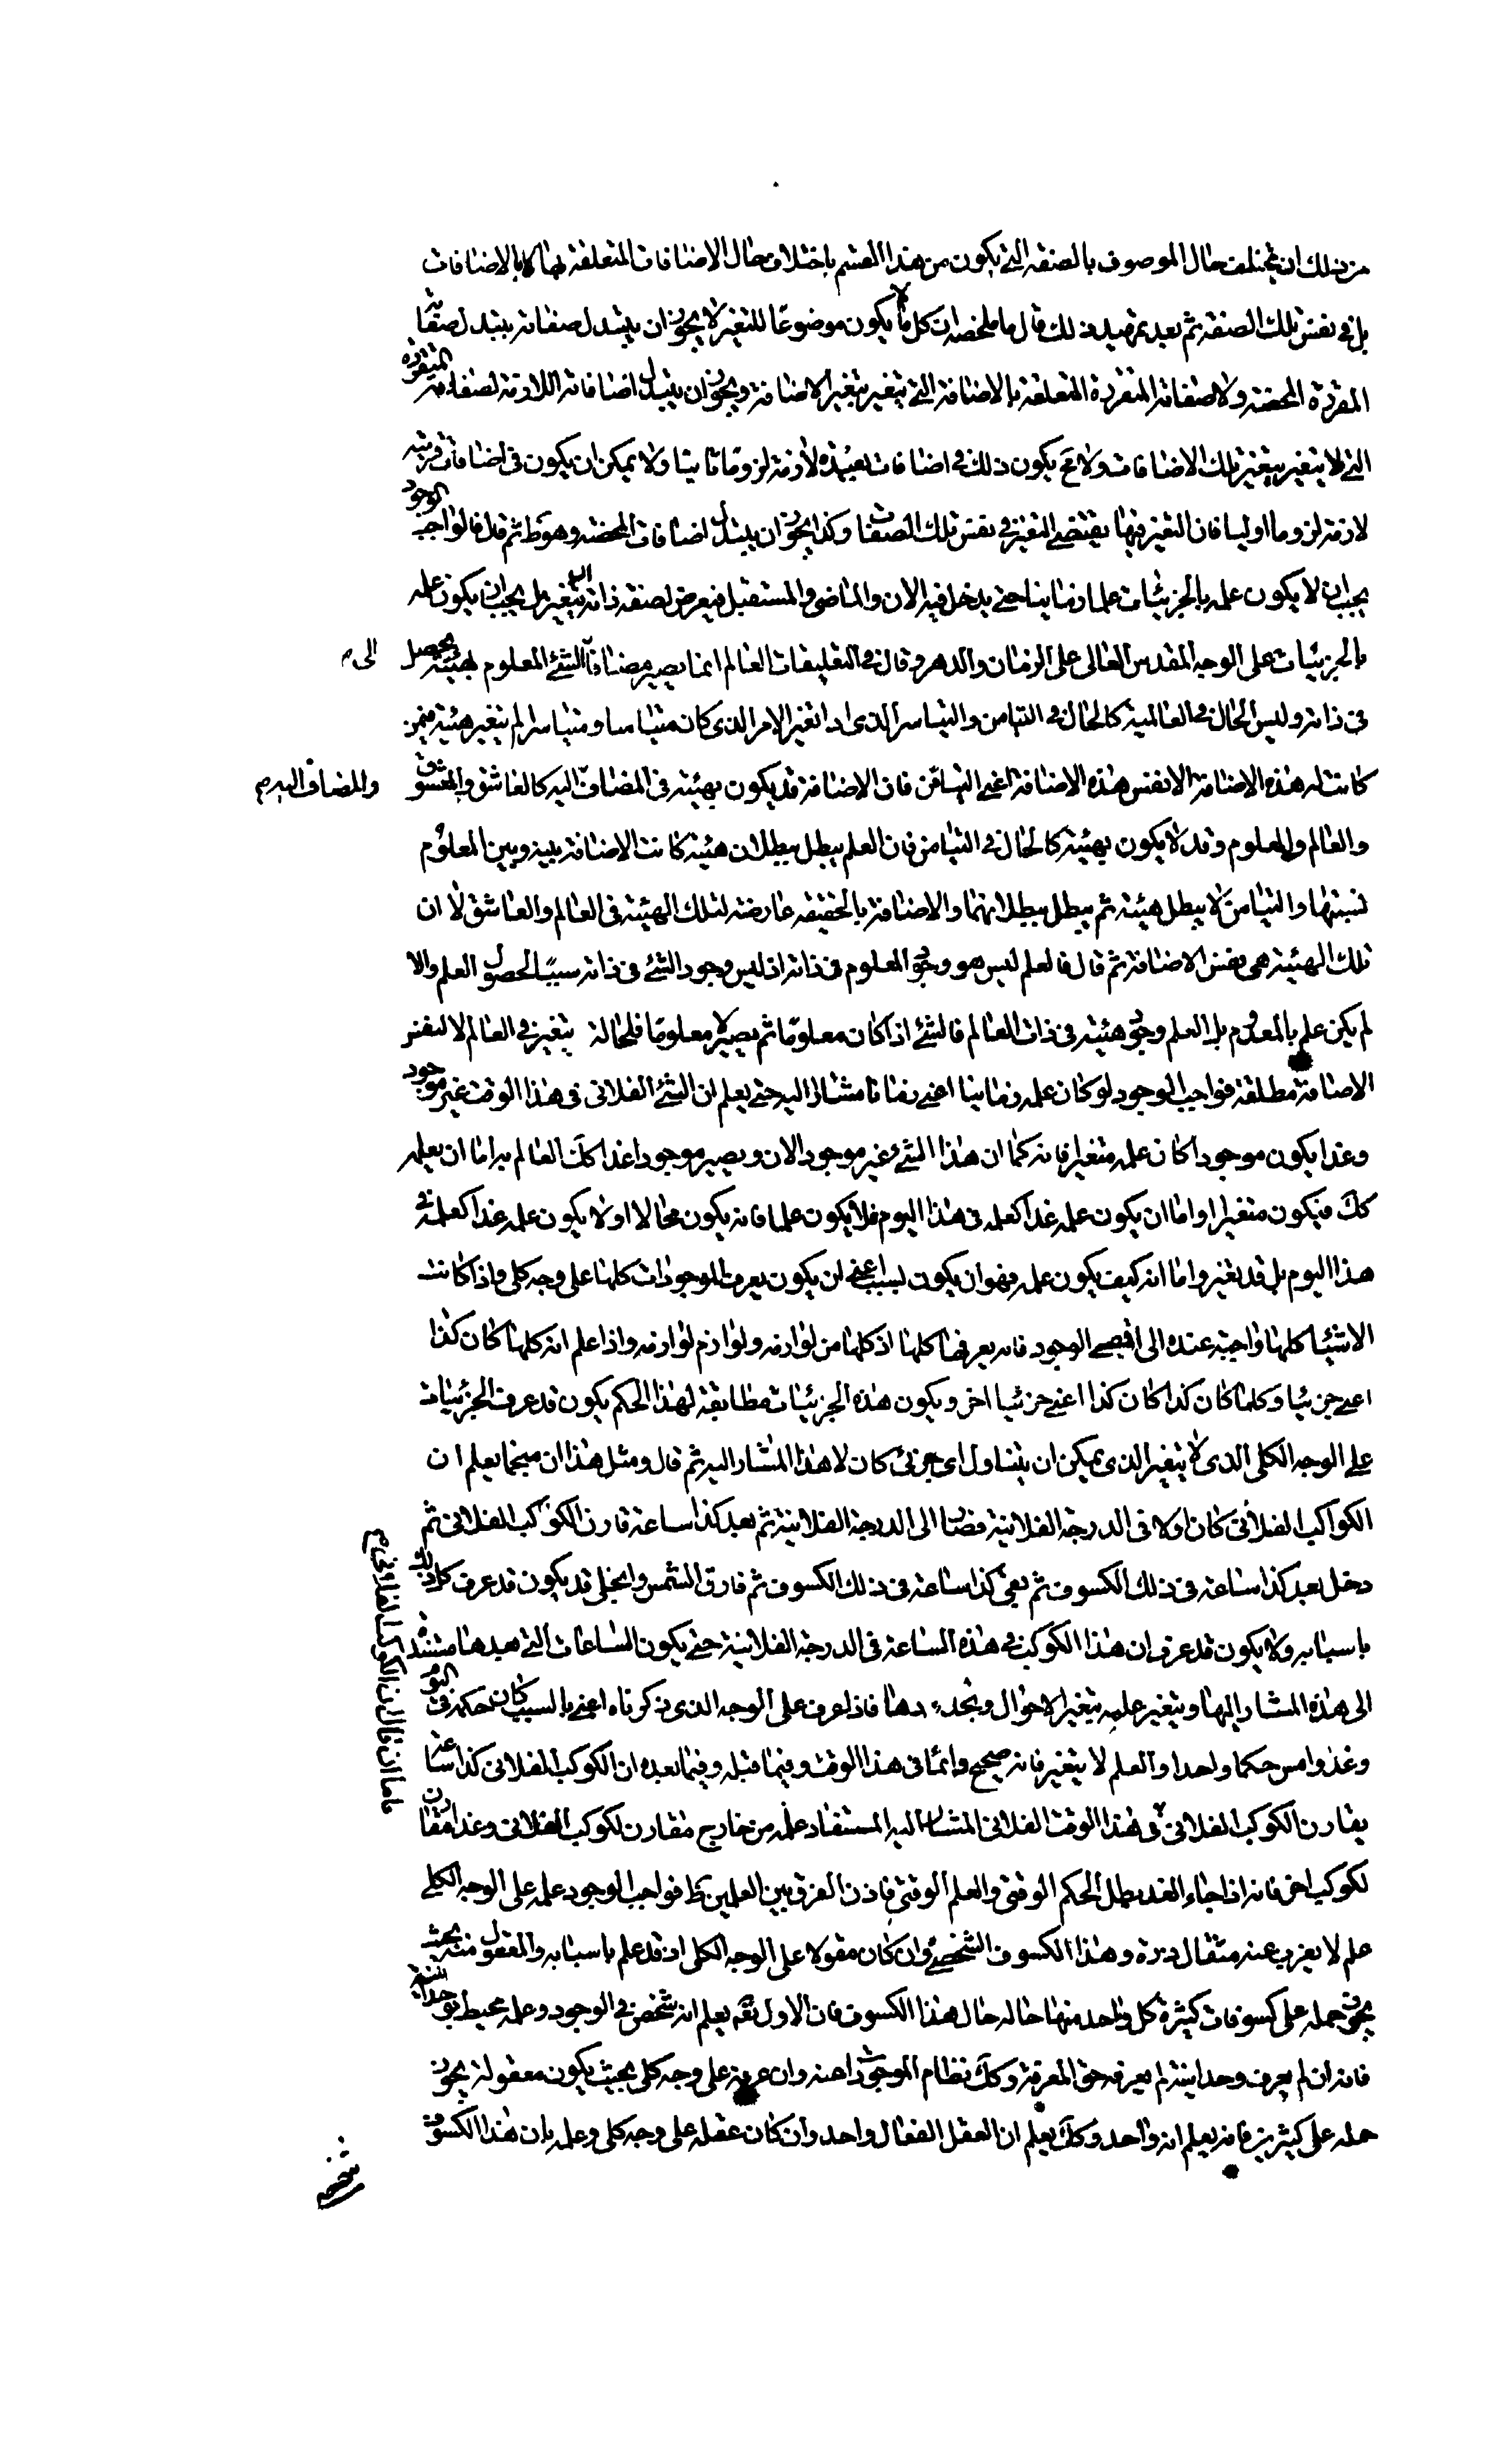 من ذلك ان يختلف حال الموصوف بالصفة التي يكون من هذا القسم باختلاف حال الاضافات المتعلقة بها لا بالاضافات
بل في نفس تلك الصفة ثم بعد تمهيد ذلك قال ما ملخصه ان كل ما لا يكون موضوعا للتغير لا يجوز ان يتبدل صفاته بتبدل صفاته
المقررة المحضة ولا صفاته المتقررة المتعلقة بالاضافة التي يتغير بتغير الاضافة ويجوز ان يتبدل اضافاته اللازمة لصفاته المتقررة
التي لا يتغير بتغير تلك الاضافات ولا مح يكون ذلك في اضافات بعيدة لازمة لزوما ثانيا ولا يمكن ان يكون في اضافات قريبة
لازمة لزوما اوليا فان التغير فيها يقتضي التغير في نفس تلك الصفات وكذا يجوز ان يتبدل اضافات المحضة وهو ظ ثم قال فالواجب الوجود
يجب ان لا يكون علمه بالجزئيات علما زمانيا حتى يدخل فيه الان والماضي والمستقبل فيعرض لصفة ذاته ان يتغير بل يجب ان يكون علمه
بالجزئيات على الوجه المقدس العالى على الزمان والدهر وقال في التعليقات العالم انما يصير مضافا الى الشئ المعلوم بهيئة يحصل
في ذاته وليس الحال في العالمية كالحال في التيامن والتياسر الذى اذا تغير الامر الذى كان متيامنا ومتياسرا لم يتغير هيئة فيمن
كانت له هذه الاضافة الا نفس هذه الاضافة اعني التيامن فان الاضافة قد يكون بهيئة في المضاف والمضاف اليه كالعاشق والمعشوق
والعالم والمعلوم وقد لا يكون بهيئة كالحال في التيامن فان العلم يبطل ببطلان هيئة كانت الاضافة بينه وبين المعلوم
نسبتها والتيامن لا يبطل هيئة ثم يبطل ببطلانهما والاضافة بالحقيقة عارضة لتلك الهيئة في العالم والعاشق لا ان
تلك الهيئة هى نفس الاضافة ثم قال فالعلم ليس هو وجود المعلوم في ذاته اذ ليس وجود الشئ في ذاته سببا لحصول العلم والا
لم يكن علم بالمعدوم بل العلم وجود هيئة في ذات العالم فالشئ اذا كان معلوما ثم يصير لا معلوما فلمحالة يتغير في العالم لا لنفس
الاضافة مطلقة فواجب الوجود لو كان علمه زمانيا اعني زمانا مشارا اليه حتى يعلم ان الشئ الفلانى في هذا الوقت غير موجود
وغدا يكون موجودا كان علمه متغيرا فانه كما ان هذا الشئ غير موجود الان ويصير موجودا غدا كك العالم به اما ان يعلمه
كك فيكون متغيرا واما ان يكون علمه غدا كعلمه في هذا اليوم فلا يكون علما فانه يكون محالا او لا يكون علمه غدا كعلمه في
هذا اليوم بل قد يغير واما انه كيف يكون علمه فهو ان يكون بسبب اعني ان يكون يعرف الموجودات كلها على وجه كلى واذا كانت
الاشياء كلها واجبة عنده الى اقصى الوجود فانه يعرفها كلها اذ كلها من لوازمه ولوازم لوازمه واذا علم انه كلما كان كذا
اعني جزئيا وكلما كان كذا كان كذا اعني جزئيا اخر ويكون هذه الجزئيات مطابقة لهذا الحكم يكون قد عرف الجزئيات
على الوجه الكلى الذى لا يتغير الذى يمكن ان يتناول اى جزئى كان لا هذا المشار اليه ثم قال ومثل هذا ان منجما يعلم ان
الكواكب الفلانى كان اولا في الدرجة الفلانية فصار الى الدرجة الفلانية ثم بعد كذا ساعة قارن الكوكب الفلانى ثم
دخل بعد كذا ساعة في ذلك الكسوف ثم بقى كذا ساعة في ذلك الكسوف ثم فارق الشمس وانجلى قد يكون قد عرف كل ذلك
باسبابه ولا يكون قد عرف ان هذا الكوكب في هذه الساعة في الدرجة الفلانية حتى يكون الساعات التي بعدها مستندة
الى هذه المشار اليها ويتغير علمه بتغير الاحوال وتجددها فاذا عرف على الوجه الذى ذكرناه اعني بالسبب كان حكمه في اليوم
وغدا وامس حكما واحدا والعلم لا يتغير فانه صحيح دائما في هذا الوقت وفيما قبله وفيما بعده ان الكوكب الفلانى كذا ساعة
يقارن الكوكب الفلانى في هذا الوقت الفلانى المشار اليه المستفاد علمه من خارج مقارن لكوكب الفلانى وغدا مقارن
لكوكب اخر فانه اذا جاء الغد بطل الحكم الوقتى والعلم الوقتى فاذن الفرق بين العلمين ظ فواجب الوجود علمه على الوجه الكلى
علم لا يعزب عنه مثقال ذرة وهذا الكسوف الشخصى وان كان مقولا على الوجه الكلى اذ قد علم باسبابه والمعقول منه بحيث
يجوز حمله على كسوفات كثيرة كل واحد منها حاله حال هذا الكسوف فان الاول تع يعلم انه شخص في الوجود وعلمه محيط بوحدانيته
فانه ان لم يعرف وحدانيته لم يعرفه حق المعرفة وكك نظام الموجودات عنه وان عرفه على وجه كلى بحيث يكون معقوله يجوز
حمله على كثيرين فانه يعلم انه واحد وكك يعلم ان العقل الفعال واحد وان كان عقله على وجه كلى وعلمه بان هذا الكسوف
شخصى